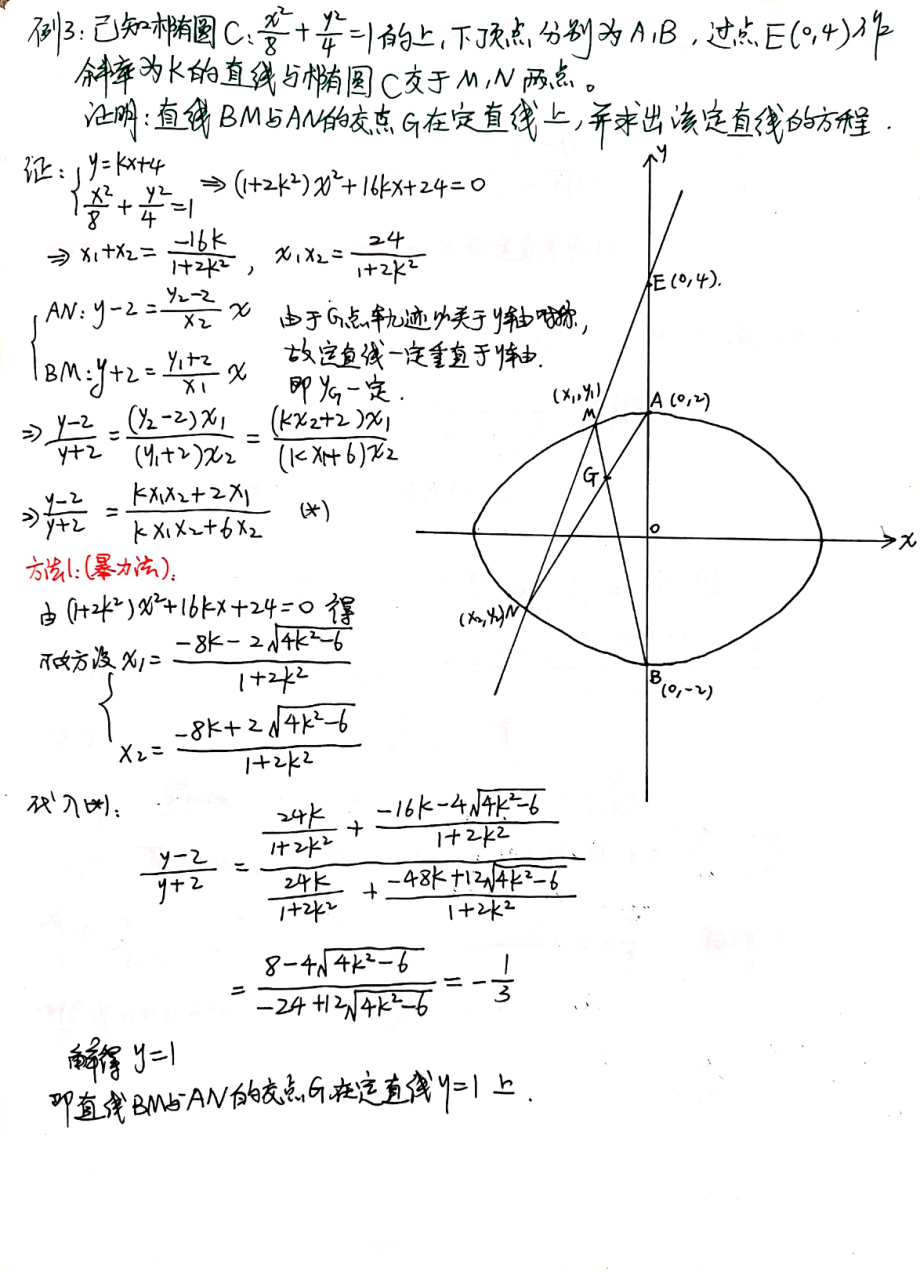 例3:已知椭圆C:x²/8+y²/4=1的上,下顶点分别为A,B,过点E(0,4)作
斜率为K的直线与椭圆C交于M,N两点。
证明:直线BM与AN的交点G在定直线上,并求出该定直线的方程.
证:{y=kx+4
x²/8+y²/4=1 ⇒(1+2k²)x²+16kx+24=0
⇒x₁+x₂=-16k/(1+2k²), x₁x₂=24/(1+2k²)
{AN:y-2=(y₂-2)/x₂ x
BM:y+2=(y₁+2)/x₁ x
由于G点轨迹必关于y轴对称,
故定直线一定垂直于y轴.
即y_G一定.
⇒(y-2)/(y+2)=(y₂-2)x₁/(y₁+2)x₂=(kx₂+2)x₁/(kx₁+6)x₂
⇒(y-2)/(y+2)=(kx₁x₂+2x₁)/(kx₁x₂+6x₂) (*)
方法1:(暴力法):
由(1+2k²)x²+16kx+24=0得
不妨设{x₁=(-8k-2√(4k²-6))/(1+2k²)
x₂=(-8k+2√(4k²-6))/(1+2k²)
代入(*):
(y-2)/(y+2)=(24k/(1+2k²)+(-16k-4√(4k²-6))/(1+2k²))/(24k/(1+2k²)+(-48k+12√(4k²-6))/(1+2k²))
=(8-4√(4k²-6))/(-24+12√(4k²-6))=-1/3
解得y=1
即直线BM与AN的交点G在定直线y=1上.
y
E(0,4).
(x₁,y₁)
M
A(0,2)
G
O
x
(x₂,y₂)N
B
(0,-2)